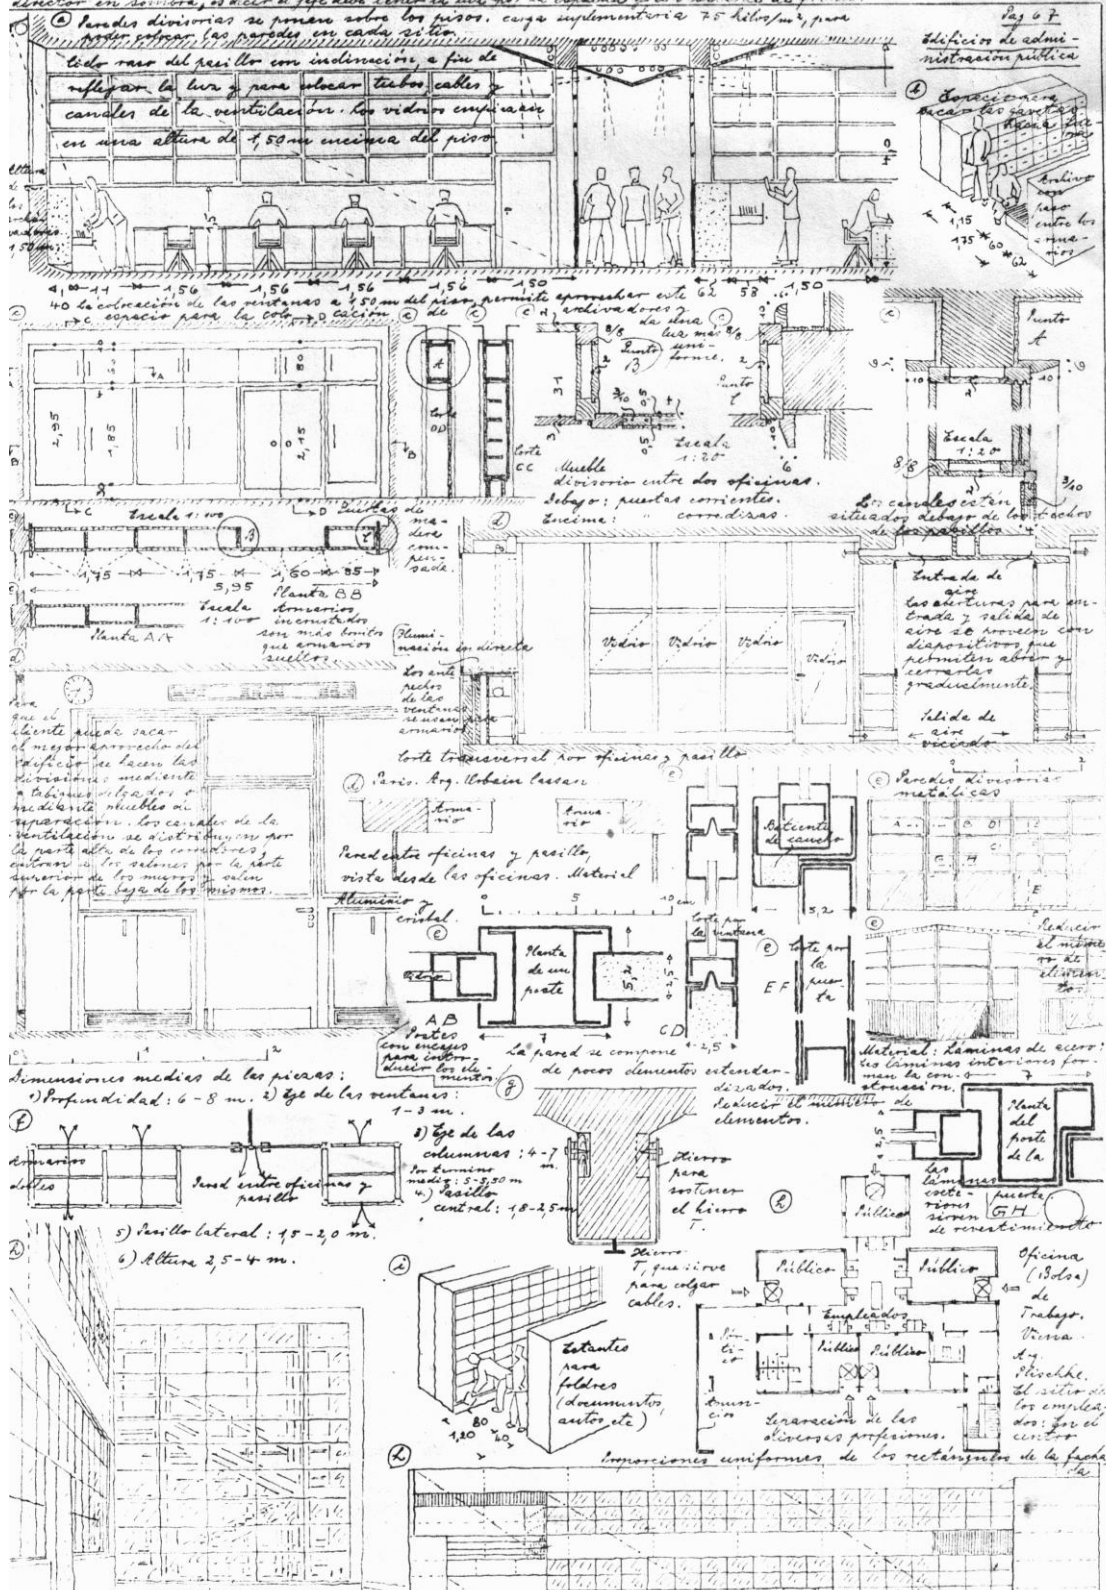 director en sombra, es decir el jefe debe tener la luz por la
ⓐ Paredes divisorias se ponen sobre los pisos. carga suplementaria 75 kilos/m², para
poder colocar las paredes en cada sitio.
Pag 67
Edificios de admi-
nistración pública
cielo raso del pasillo con inclinación, a fin de
reflejar la luz y para colocar tubos, cables y
canales de la ventilación. Los vidrios empiezan
en una altura de 1,50 m encima del piso.
Altura
de
los
archi-
vadores
1,50 m
ⓑ Espacio para
sacar las gavetas
hacia
Archivo
con
paso
entre los
arma-
rios
1,15
175
60
62
1,56
1,56
1,56
1,56
1,50
62
58
1,50
40 la colocación de las ventanas a 1,50 m del piso, permite aprovechar este
espacio para la colocación de archivadores y
da una
luz más
uni-
forme.
C
D
A
2,95
1,85
2,15
80
B
A
Corte
CD
Corte
CC
Punto
B
Punto
C
8/8
8/8
Escala
1:20
Mueble
divisorio entre dos oficinas.
Debajo: puertas corrientes.
Encima: " corredizas.
Punto
A
10
10
Escala
1:20
8/8
3/10
Los canales están
situados debajo de los techos
de los pasillos.
C
Escala 1:100
D
Puertas de
ma-
dera
com-
pen-
sada.
B
C
1,75
1,75
1,60
85
5,95
Planta BB
Escala
1:100
Planta AA
Armarios
incrustados
son más bonitos
que armarios
sueltos.
Ilumi-
nación indirecta
Los ante
pechos
de las
ventanas
se usan para
armarios
Vidrio
Vidrio
Vidrio
Vidrio
Entrada de
aire
Las aberturas para en-
trada y salida de
aire se proveen con
dispositivos que
permiten abrir y
cerrarlas
gradualmente.
Salida de
aire
viciado
Corte transversal por oficinas y pasillo
Para
que el
cliente pueda sacar
el mejor aprovecho del
edificio se hacen las
divisiones mediante
tabiques delgados o
mediante muebles de
separación. Los canales de la
ventilación se distribuyen por
la parte alta de los corredores,
entran a los salones por la parte
superior de los muros y salen
por la parte baja de los mismos.
ⓓ Paris. Arq.
Arma-
rio
Arma-
rio
Pared entre oficinas y pasillo,
vista desde las oficinas. Material
Aluminio y
cristal.
0
5
10 cm
Batiente
de caucho
Corte por
la ventana
5,2
ⓔ Paredes divisorias
metálicas
0
1
2
A
B
D
C
G
H
E
Planta
de un
poste
AB
Postes
con encajes
para intro-
ducir los ele-
mentos
7
5,2
2,5
CD
2,5
ⓔ Corte por
la
puer-
ta
EF
Reducir
el núme-
ro de
elemen-
tos
La pared se compone
de pocos elementos estandar-
dizados.
Reducir el número de
elementos.
Material: Láminas de acero:
Las láminas interiores for-
man la con-
strucción.
7
2,5
Planta
del
poste
de la
puerta
GH
Las
láminas
exte-
riores
sirven
de revestimiento
0
1
2
Dimensiones medias de las piezas:
1) Profundidad: 6-8 m. 2) Eje de las ventanas:
1-3 m.
3) Eje de las
columnas: 4-7
m.
Por termino
medio: 5-5,50 m
4.) Pasillo
central: 1,8-2,5 m
ⓕ
Armarios
dobles
Pared entre oficinas y
pasillo
5) Pasillo lateral: 1,5-2,0 m.
6) Altura 2,5-4 m.
ⓖ
Hierro
para
sostener
el hierro
T.
Hierro
T, que sirve
para colgar
cables.
ⓗ
Público
Público
Público
Empleados
Público
Público
Pór-
ti-
co
Anun-
cios
Separación de las
diversas profesiones.
Oficina
(Bolsa)
de
Trabajo.
Viena.
Arq.
Plischke.
El sitio de
los emplea-
dos: En el
centro
ⓘ
Estantes
para
foldres
(documentos,
autos, etc)
80
1,20
40
ⓗ
Proporciones uniformes de los rectángulos de la facha
da